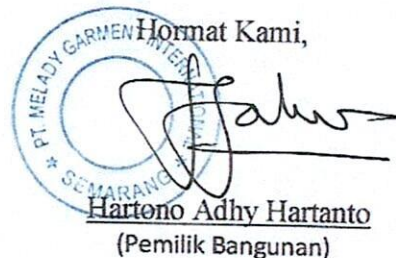 Hormat Kami,
PT. MELADY GARMEN INTERNATIONAL
* SEMARANG *
Hartono Adhy Hartanto
(Pemilik Bangunan)